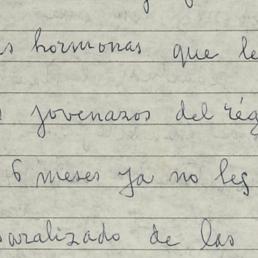 s hormonas que le
s jovenazos del rég
6 meses ya no leg
paralizado de las